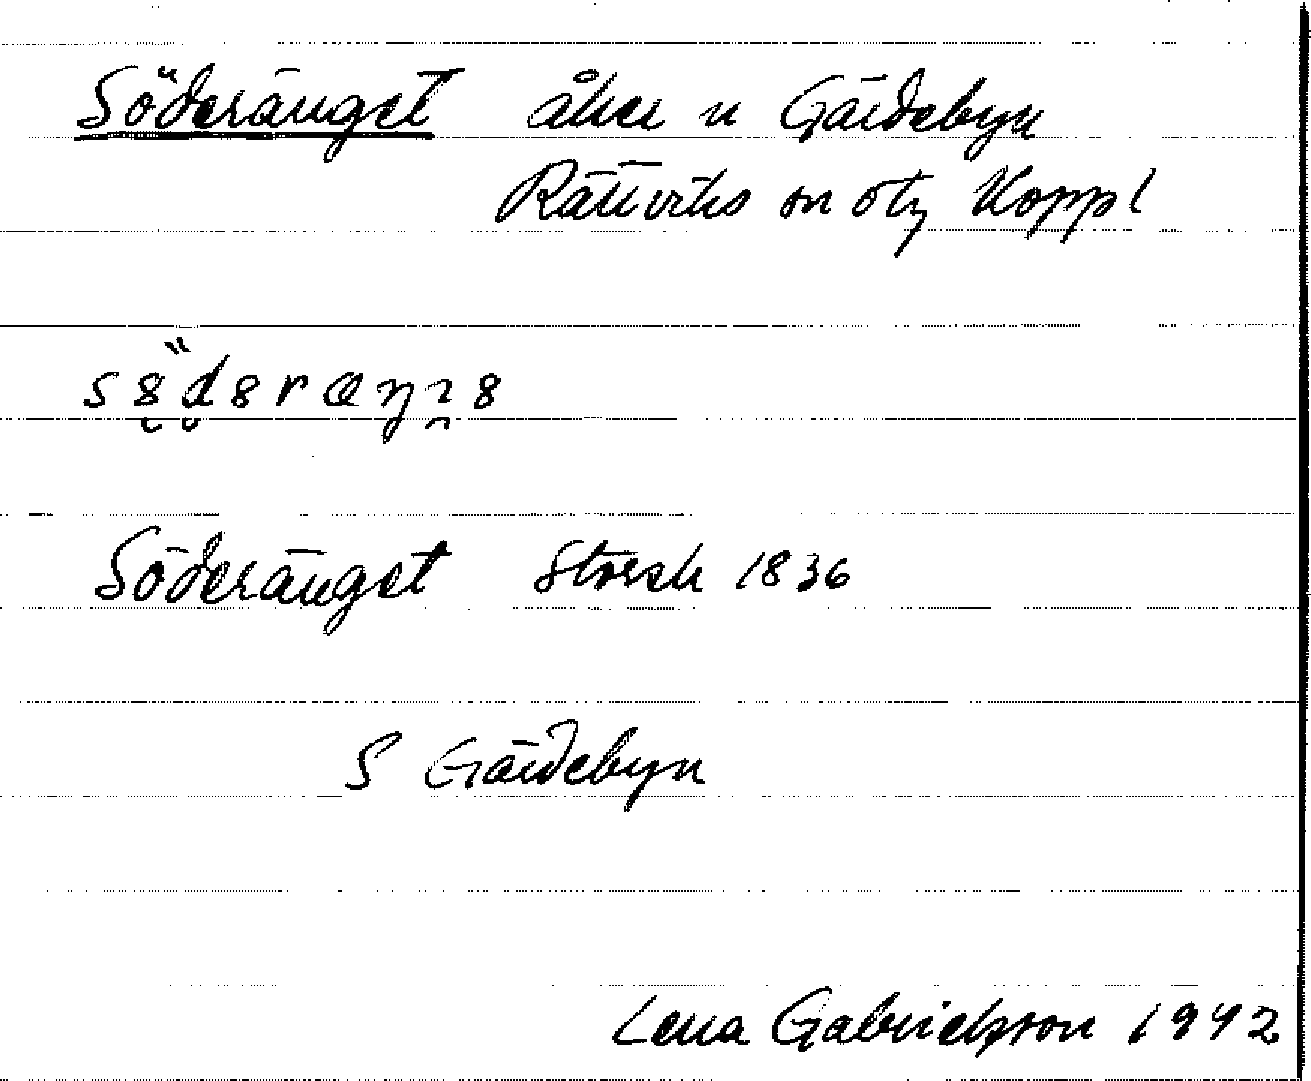 Söderänget åker n Gärdebyn
Rättviks sn o tg Koppl
Söderänget Storsk 1836
S Gärdebyn
Lena Gabrielsson 1942